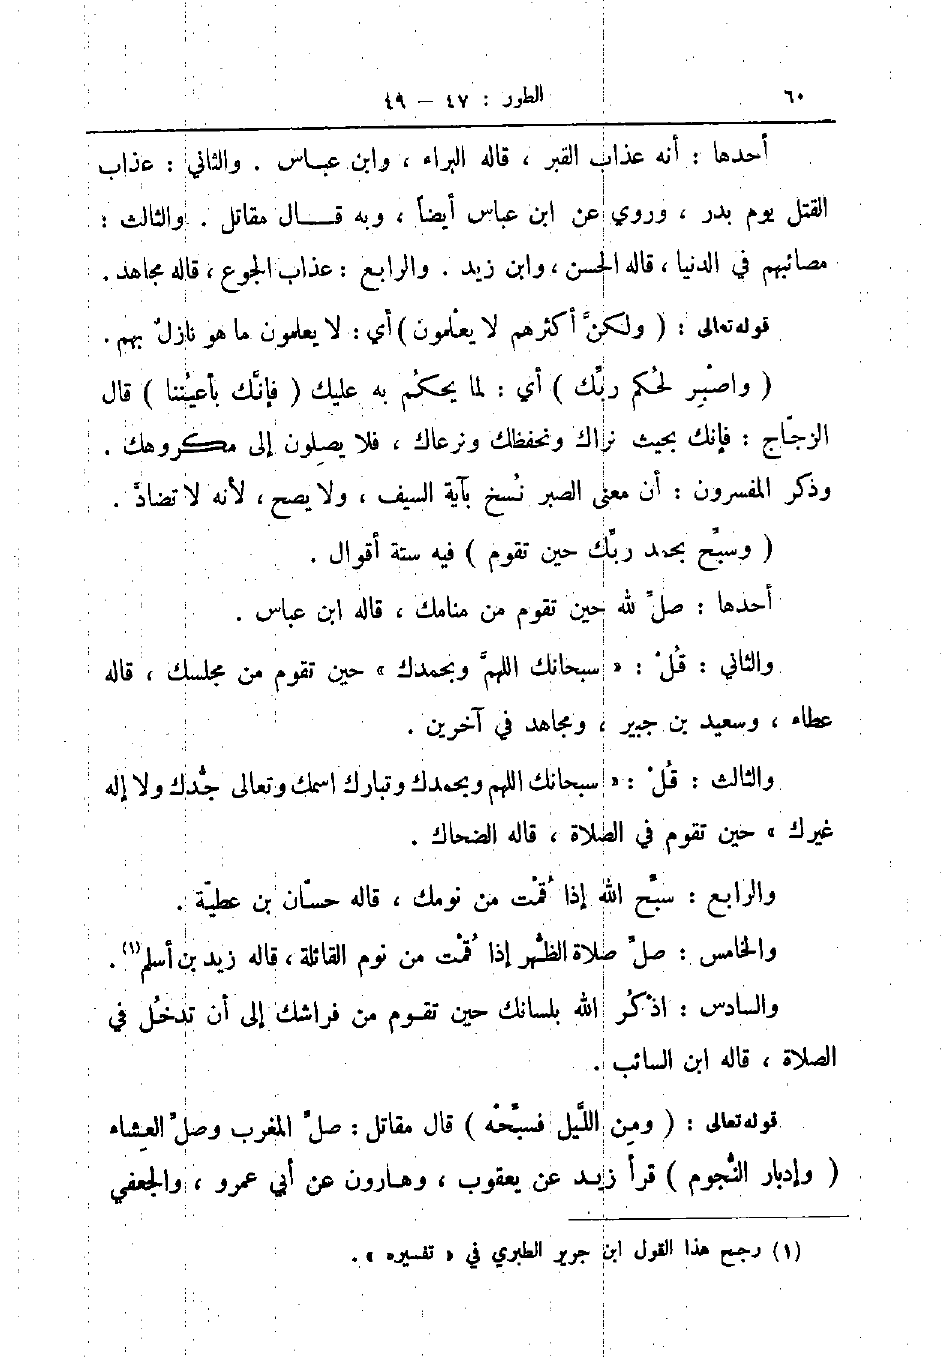 ٦٠
الطور : ٤٧ – ٤٩
أحدها : أنه عذاب القبر ، قاله البراء ، وابن عباس . والثاني : عذاب
القتل يوم بدر ، وروي عن ابن عباس أيضاً ، وبه قال مقاتل . والثالث :
مصائبهم في الدنيا ، قاله الحسن ، وابن زيد . والرابع : عذاب الجوع ، قاله مجاهد .
قوله تعالى : ( ولكنَّ أكثرهم لا يعْلمون ) أي : لا يعلمون ما هو نازلٌ بهم .
( واصْبِر لحُكم ربِّك ) أي : لما يحكُم به عليك ( فإنَّك بأعيُننا ) قال
الزجّاج : فإنك بحيث نراك ونحفظك ونرعاك ، فلا يصِلون إلى مكروهك .
وذكر المفسرون : أن معنى الصبر نُسخ بآية السيف ، ولا يصح ، لأنه لا تضادَّ .
( وسبِّح بحمد ربِّك حين تقوم ) فيه ستة أقوال .
أحدها : صلِّ لله حين تقوم من منامك ، قاله ابن عباس .
والثاني : قُلْ : « سبحانك اللهمَّ وبحمدك » حين تقوم من مجلسك ، قاله
عطاء ، وسعيد بن جبير ، ومجاهد في آخرين .
والثالث : قُلْ : « سبحانك اللهم وبحمدك وتبارك اسمك وتعالى جَدُّك ولا إله
غيرك » حين تقوم في الصلاة ، قاله الضحاك .
والرابع : سبِّح الله إذا قُمْت من نومك ، قاله حسّان بن عطيّة .
والخامس : صلِّ صلاة الظُّهر إذا قُمْت من نوم القائلة ، قاله زيد بن أسلم (١) .
والسادس : اذْكُر الله بلسانك حين تقوم من فراشك إلى أن تدخُل في
الصلاة ، قاله ابن السائب .
قوله تعالى : ( ومِن اللَّيل فسبِّحْه ) قال مقاتل : صلِّ المغرب وصلِّ العِشاء
( وإدبار النُّجوم ) قرأ زيد عن يعقوب ، وهارون عن أبي عمرو ، والجعفي
(١) رجح هذا القول ابن جرير الطبري في « تفسيره » .